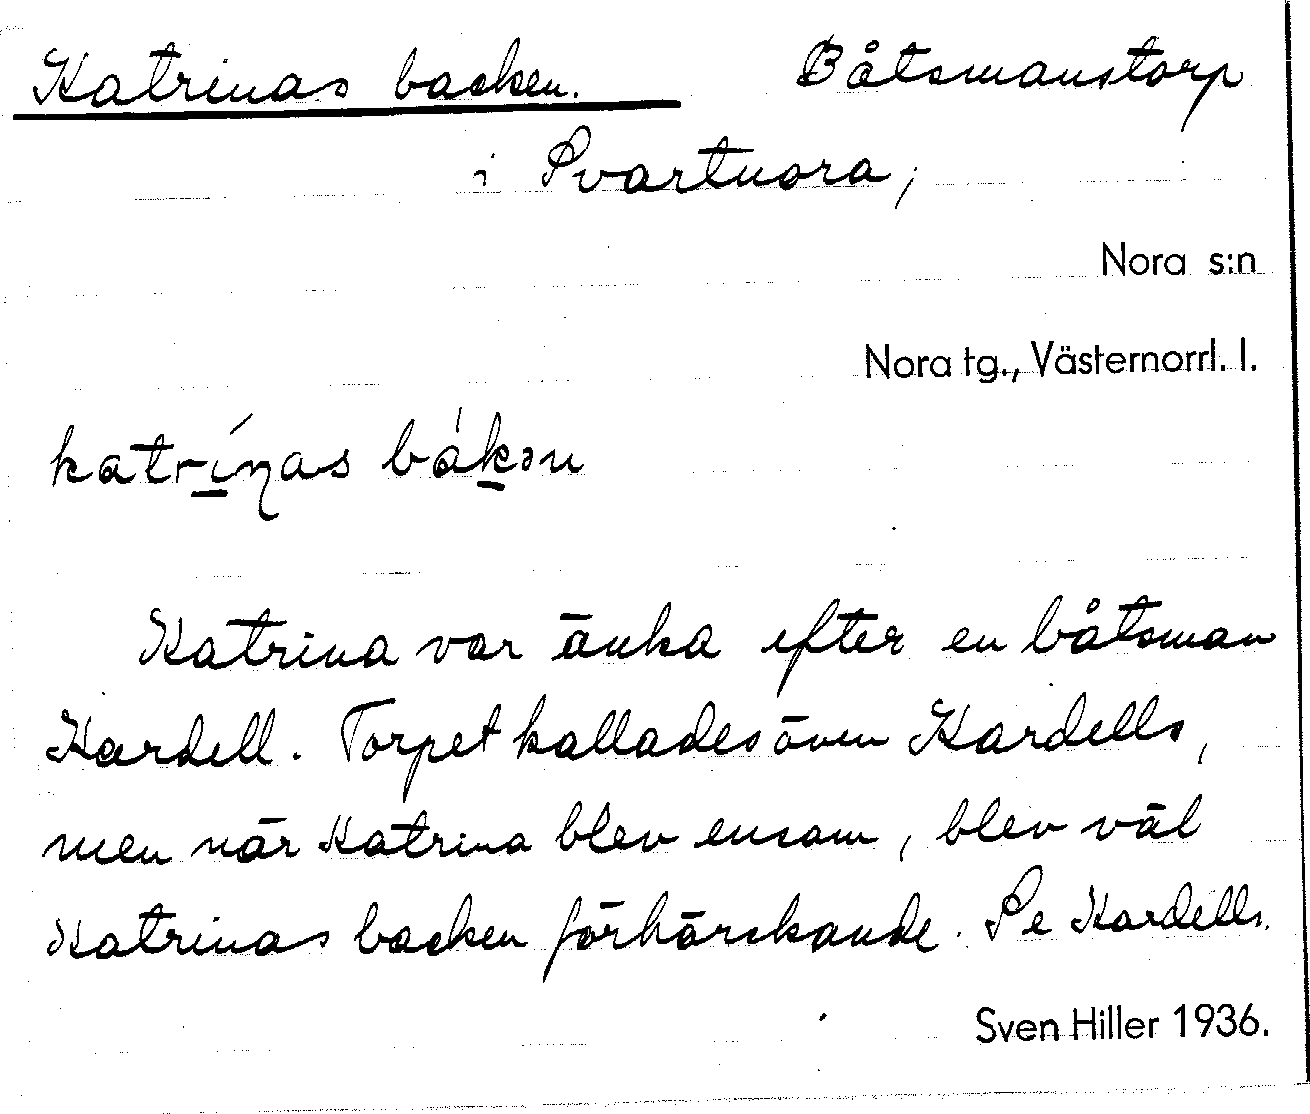 Katrinas backen. Båtsmanstorp
i Svartnora,
Nora s:n
Nora tg., Västernorrl. l.
katríŋas bákən
Katrina var änka efter en båtsman
Kardell. Torpet kallades även Kardells,
men när Katrina blev ensam, blev väl
Katrinas backen förhärskande. Se Kardells.
Sven Hiller 1936.